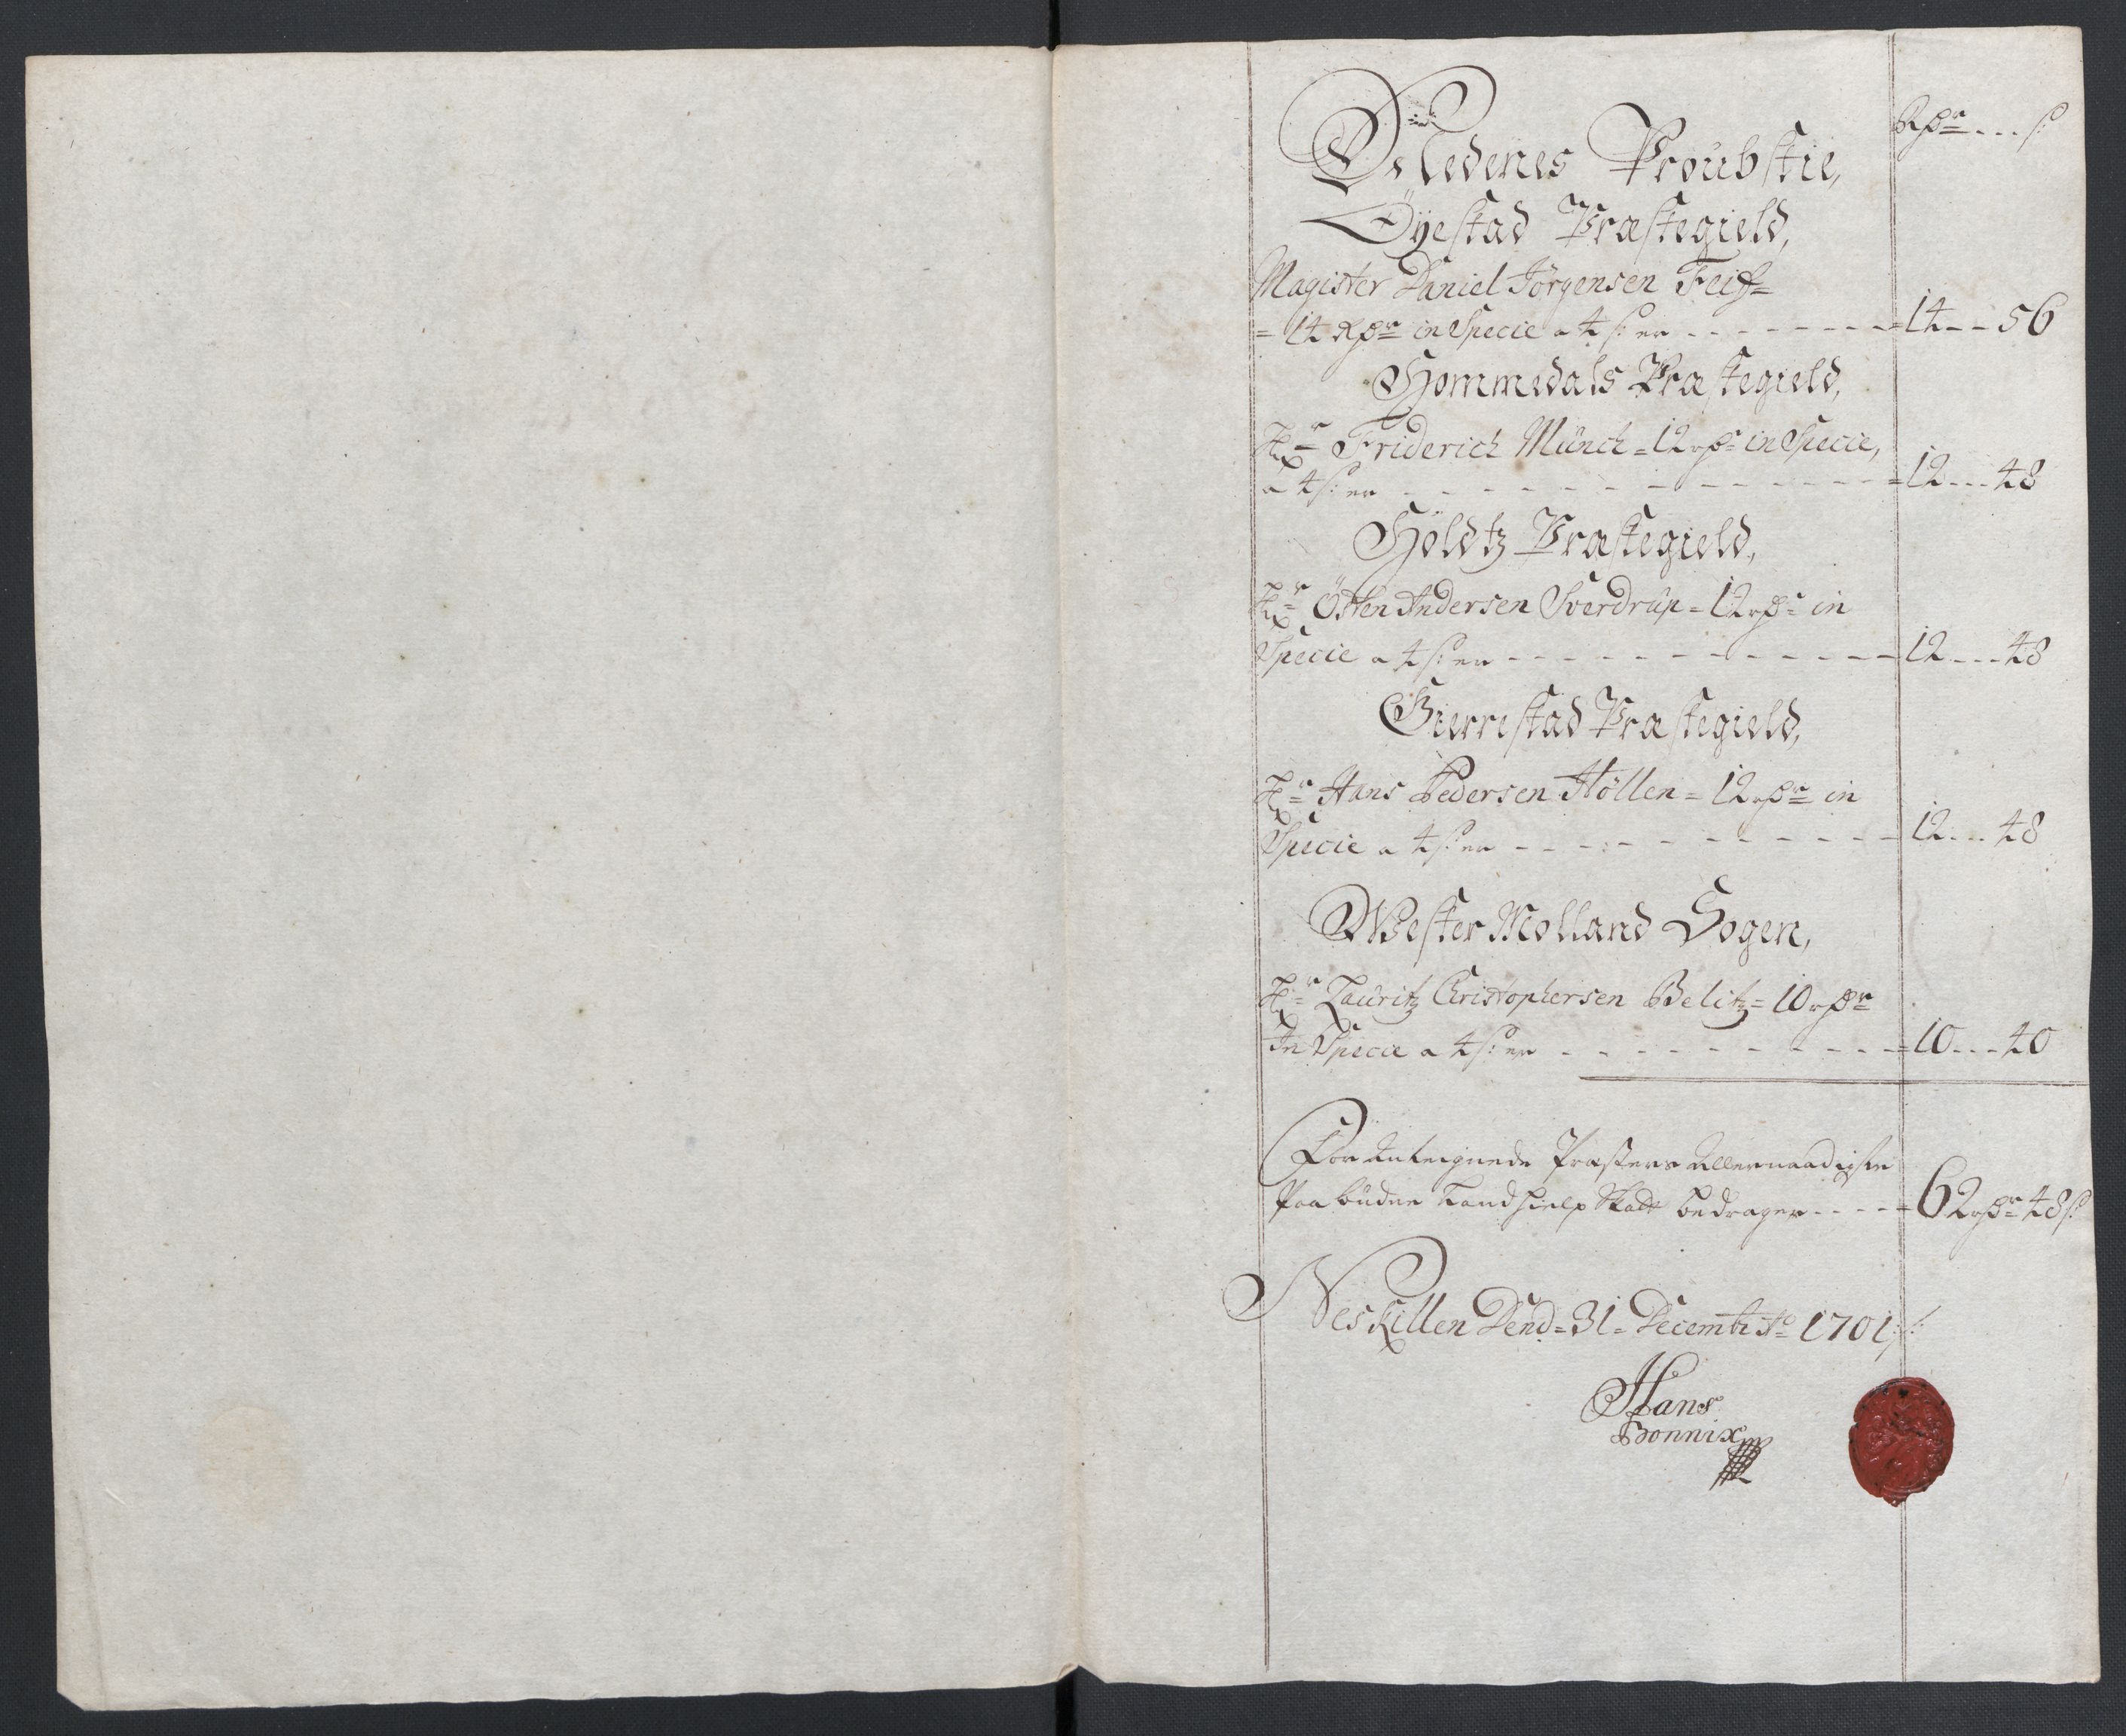 Rdr --- s:
Nedenes Proubstie,
Öyestad Præstegield,
Magister Daniel Jörgensen Feiff=
= 14 Rdr in Specie a 4 s: er - - - - - - - = 14 --- 56
Hommedals Præstegield,
Hr Friderich Münch = 12 rdr in Specie,
a 4 s: er - - - - - - - - - - - = 12 --- 48
Höldtz Præstegield,
Hr Østen Andersen Sverdrup = 12 rdr in
Specie a 4 s: er - - - - - - - - - - 12 --- 48
Gierrestad Præstegield,
Hr Hans Pedersen Höllen = 12 rdr in
Specie a 4 s: er - - - - - - - - - - 12 --- 48
Wester Molland Sogen,
Hr Lauritz Christophersen Belitz = 10 rdr
In Specie a 4 s: er - - - - - - - - - = 10 --- 40
Præsters Allernaadigste
Paabudne Landhielp Skatt bedrager - - - - = 62 rdr 48 s:
Neskillen Dend = 31 = Decembr Ao 1701 ./.
Hans
Bonnix